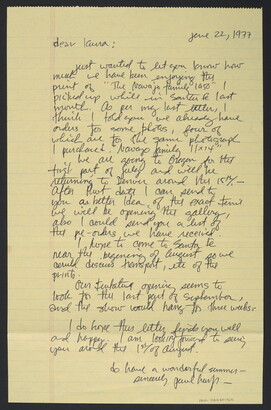 june 22, 1977
dear Laura:
just wanted to let you know how
much we have been enjoying the
print of "The Navajo family 1950"
picked up while in Santa Fe last
month. As per my last letter, I
think I told you we already have
orders for some photos, four of
which are for the same photograph
I purchased. Navajo family
We are going to Oregon for the
first part of July and will be
returning to Denver around the
After that date I can send to
you a better idea of the exact time
we will be opening the gallery,
also I could send you a list of
the pre-orders, we have received.
I hope to come to Santa Fe
near the beginning of August so we
could discuss transport, etc of the
prints.
Our tentative opening seems to
look for the last part of September,
and the show would hang for three weeks.
I do hope this letter finds you well
and happy. I am looking forward to seeing
you around the 1st of August.
do have a wonderful summer—
sincerely, paul